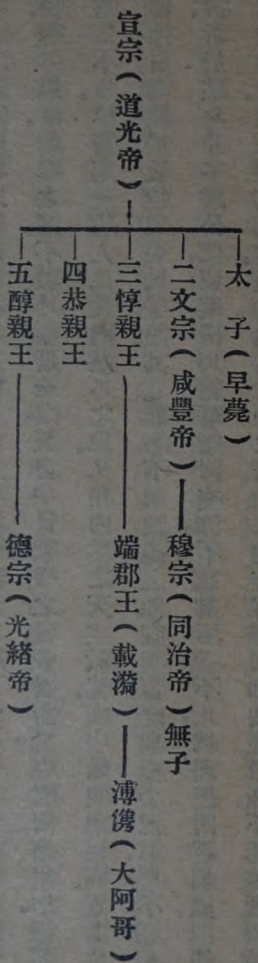 宣宗（道光帝）
太　子（早薨）
二文宗（咸豐帝）——穆宗（同治帝）無子
三惇親王——端郡王（載漪）——溥儁（大阿哥）
四恭親王
五醇親王——德宗（光緒帝）